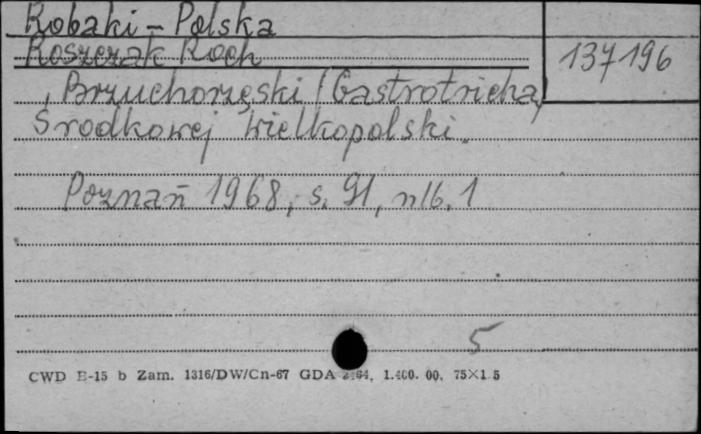 Robaki - Polska
Roszczak Roch
137196
, Brzuchorzęski (Gastrotricha)
Środkowej Wielkopolski.
Poznań 1968, s. 91, nlb. 1
5
CWD E-15 b Zam. 1316/DW/Cn-67 GDA 2464, 1.400. 00, 75×1 5